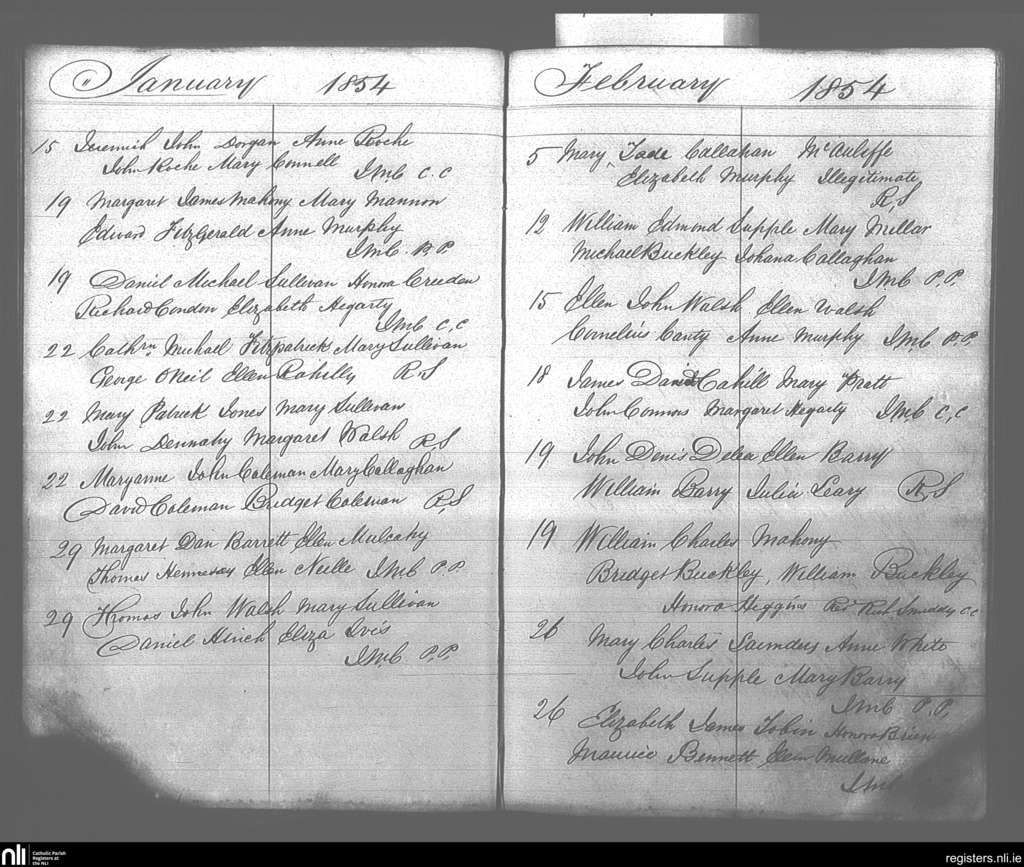 January 1854
15 Jeremiah John Dorgan Anne Roche
John Roche Mary Connell
J.McC C.C
19 Margaret James Mahony Mary Mannon
Edward FitzGerald Anne Murphy
J.McC. P.P.
19 Daniel Michael Sullivan Honora Creedon
Richard Condon Elizabeth Hegarty
J.McC C.C
22 Cathrn Michael Fitzpatrick Mary Sullivan
George ONeil Ellen Rahelly R.S
22 Mary Patrick Jones Mary Sullivan
John Dennahy Margaret Walsh R,S
22 Maryanne John Coleman Mary Callaghan
David Coleman Bridget Coleman R,S
29 Margaret Dan Barrett Ellen Mulcahy
Thomas Hennessy Ellen Neille J.McC P.P
29 Thomas John Walsh Mary Sullivan
Daniel Eliza Ives
J.McC P.P.
February 1854
5 Mary Tade Callahan McAuliffe
Elizabeth Murphy Illegitimate
R,S
12 William Edmond Supple Mary Millar
Michael Buckley Johana Callaghan
J.McC P.P.
15 Ellen John Walsh Ellen Walsh
Cornelius Canty Anne Murphy J.McC P.P.
18 James David Cahill Mary Pratt
John Connors Margaret Hegarty J.McC C,C
19 John Denis Delea Ellen Barry
William Barry Julia Leary R,S
19 William Charles Mahony
Bridget Buckley, William Buckley
Honora Heggins Revd Richd Smiddy C.C
26 Mary Charles Saunders Anne White
John Supple Mary Barry
J.McC P.P.
26 Elizabeth James Tobin Honora Brien
Maurice Bennett Ellen Mullane
nli Catholic Parish
Registers at
the NLI
registers.nli.ie